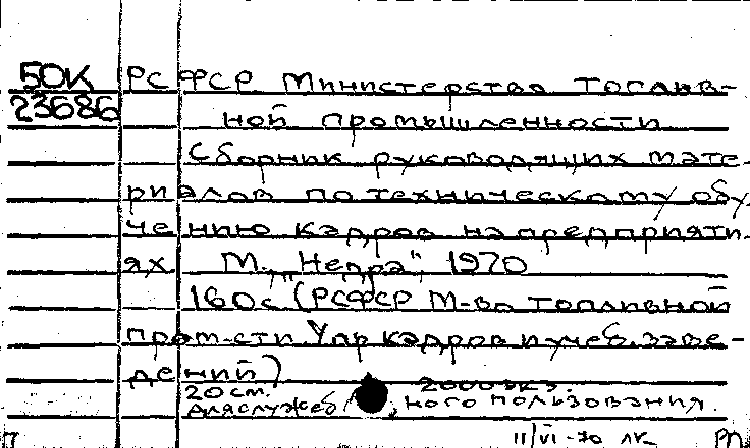 50К РСФСР Министерство топлив-
23686 ной промышленности
Сборник руководящих мате-
риалов по техническому обу
чению кадров на предприяти-
ях М., „Недра", 1970
160с (РСФСР М-во топливной
пром-сти Упр кадров и учеб. заве-
дений)
20 см. 2000 экз.
для служеб ного пользования.
11/VI-70